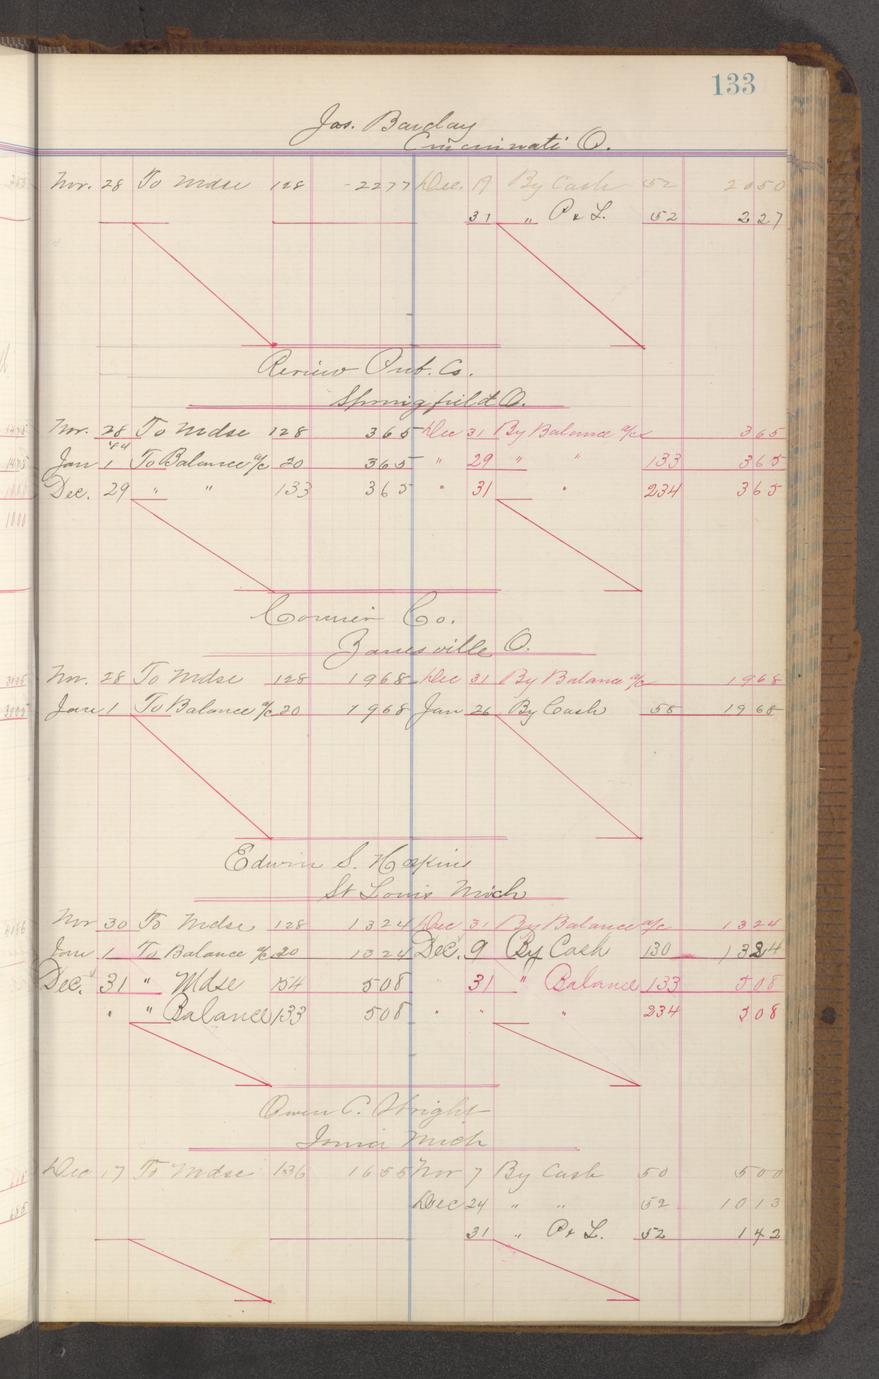 133
Jos. Barclay
Cincinnati O.
Nov. 28 To Mdse 128 2277 Dec. By Cash 52 2050
31 " P & L. 52 227
Review Pub. Co.
Springfield O.
Nov. 28 To Mdse 128 365 Dec 31 By Balance a/c 365
Jan 1 To Balance a/c 20 365 " 29 " " 133 365
Dec. 29 " " 133 365 " 31 " 234 365
Courier Co.
Zanesville O.
Nov. 28 To Mdse 128 1968 Dec 31 By Balance a/c 1968
Jan 1 To Balance a/c 20 1968 Jan 26 By Cash 58 1968
Edwin S. Hoskins
St Louis Mich
Nov 30 To Mdse 128 1324 Dec 31 By Balance a/c 1324
Jan 1 To Balance a/c 20 1324 Dec. 9 By Cash 130 1324
Dec. 31 " Mdse 154 508 31 " Balance 133 508
" " Balance 133 508 " " " 234 508
Owen C. Wright
Ionia Mich
Dec 17 To Mdse 136 1655 Nov 7 By Cash 50 500
Dec 24 " " 52 1013
31 " P & L. 52 142